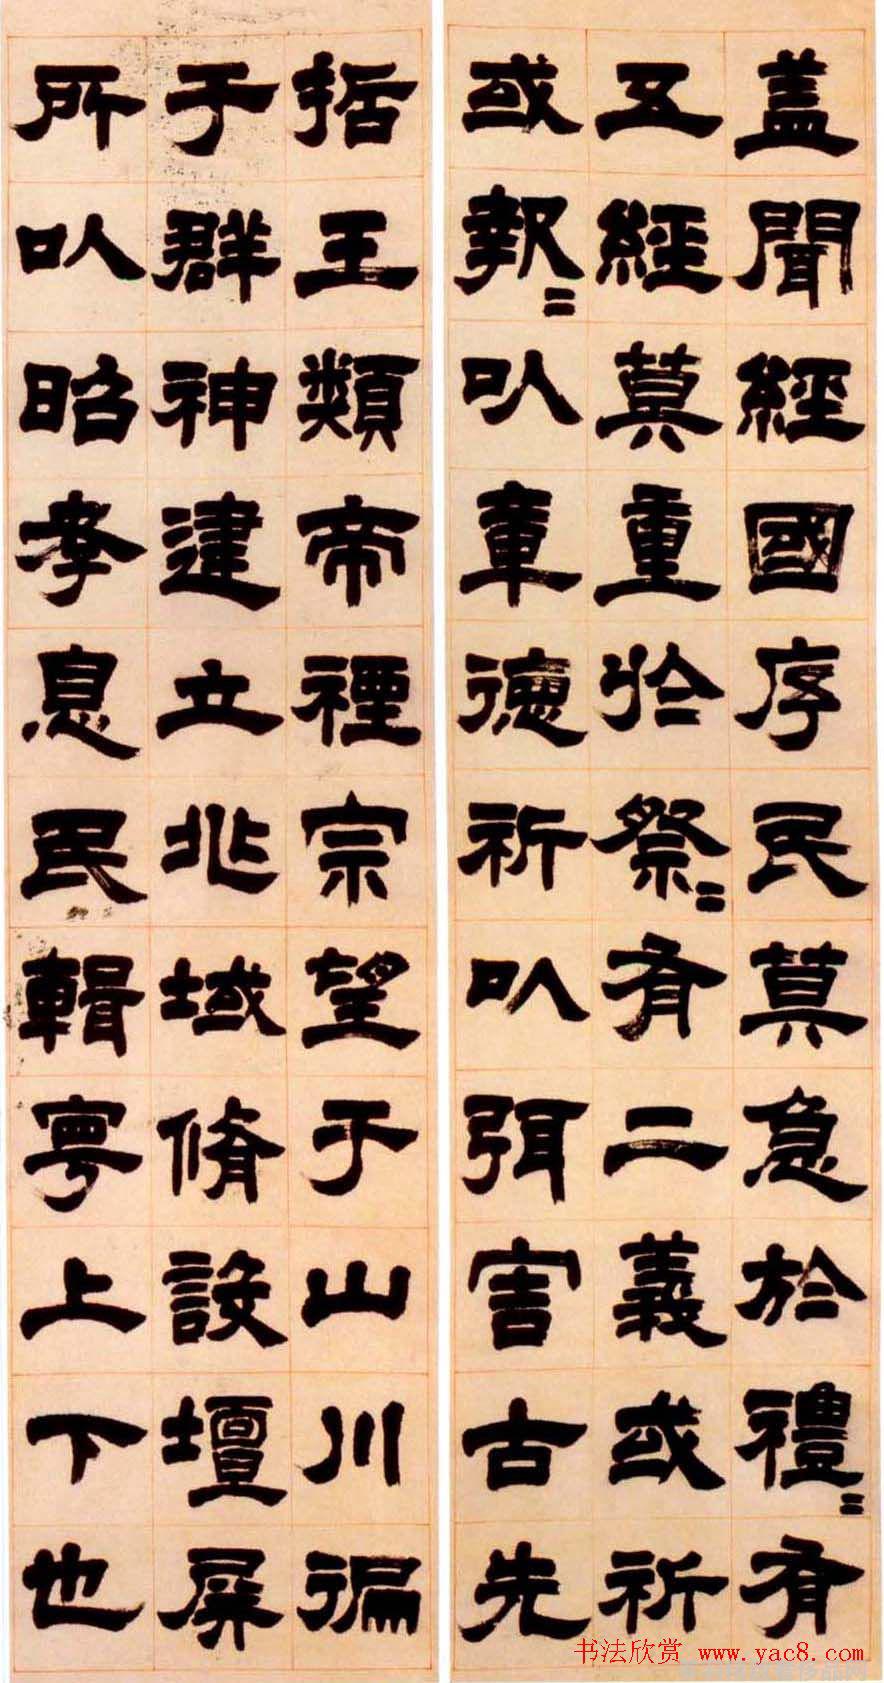 盖聞經國序民莫急於禮〻有
五經莫重於祭〻有二義或祈
或報〻以章德祈以弭害古先
哲王類帝禋宗望于山川徧
于群神建立兆域脩設壇屏
所以昭孝息民輯寧上下也
书法欣赏 www.yac8.com